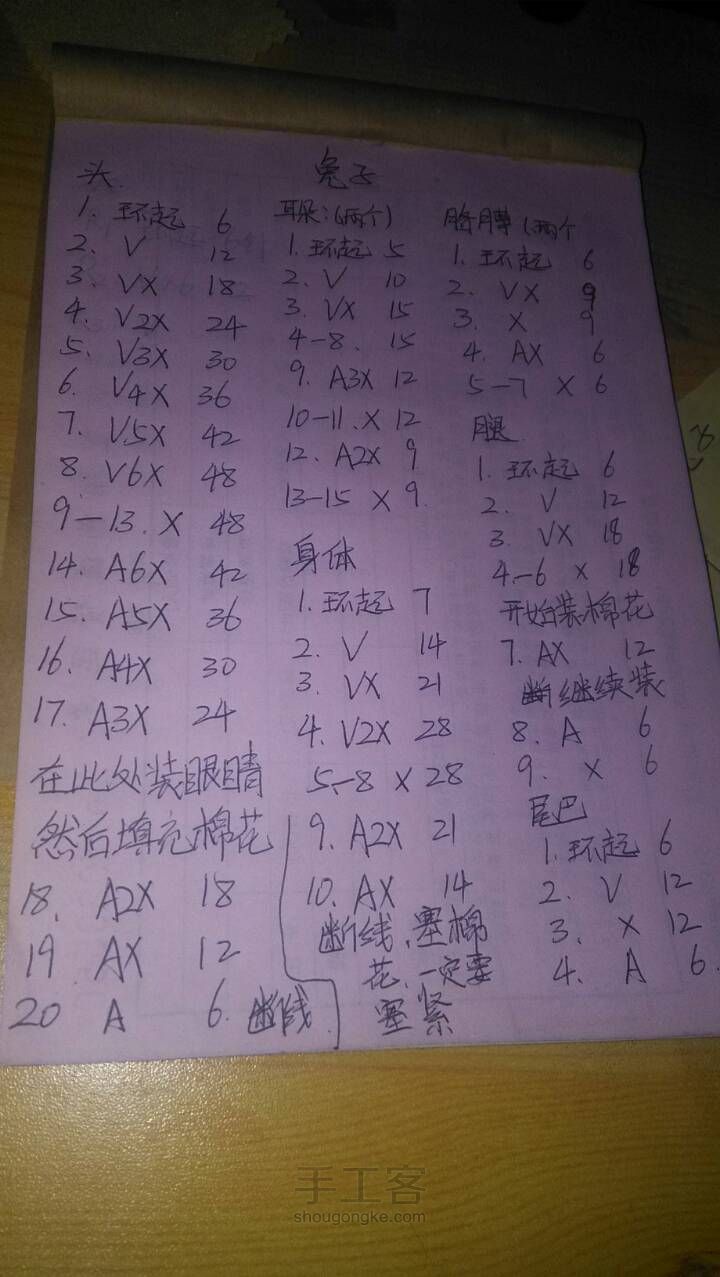 兔子
头
1. 环起 6
2. V 12
3. VX 18
4. V2X 24
5. V3X 30
6. V4X 36
7. V5X 42
8. V6X 48
9—13. X 48
14. A6X 42
15. A5X 36
16. A4X 30
17. A3X 24
在此处装眼睛
然后填充棉花
18. A2X 18
19 AX 12
20 A 6. 断线.
耳朵:(两个)
1. 环起 5
2. V 10
3. VX 15
4—8. 15
9. A3X 12
10—11. X 12
12. A2X 9
13—15 X 9.
身体
1. 环起 7
2. V 14
3. VX 21
4. V2X 28
5—8 X 28
9. A2X 21
10. AX 14
断线、塞棉
花、一定要
塞紧
胳膊(两个
1. 环起 6
2. VX 9
3. X 9
4. AX 6
5—7 X 6
腿
1. 环起 6
2. V 12
3. VX 18
4—6 X 18
开始装棉花
7. AX 12
继续装
8. A 6
9. X 6
尾巴
1. 环起 6
2. V 12
3. X 12
4. A 6.
手工客
shougongke.com